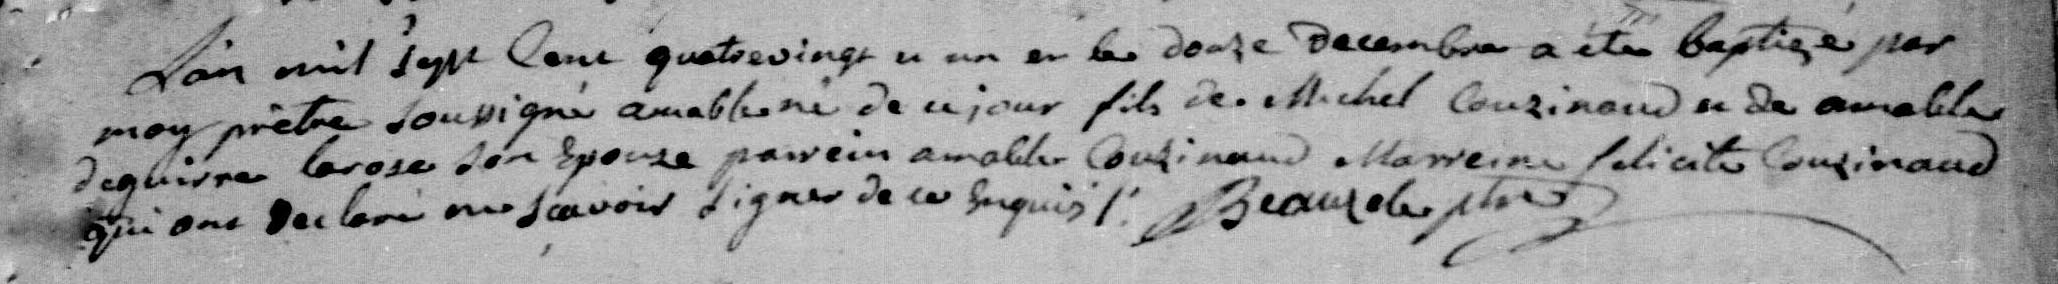 L'an mil sept cent quatrevingt u un en le douze Decembre a été baptizé par
moy prêtre soussigné amable né de ce jour fils de Michel Couzinaud u de amable
deguirre larose son Epouze parrein amable Couzinaud Marreine felicite Couzinaud
qui ont declaré ne scavoir signer de ce Enquis /. Beauzele ptre